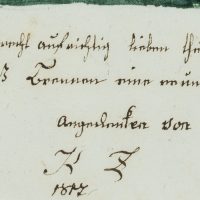 recht aufrichtig lieben
Trennen eine
Angedenken von
K F
1817